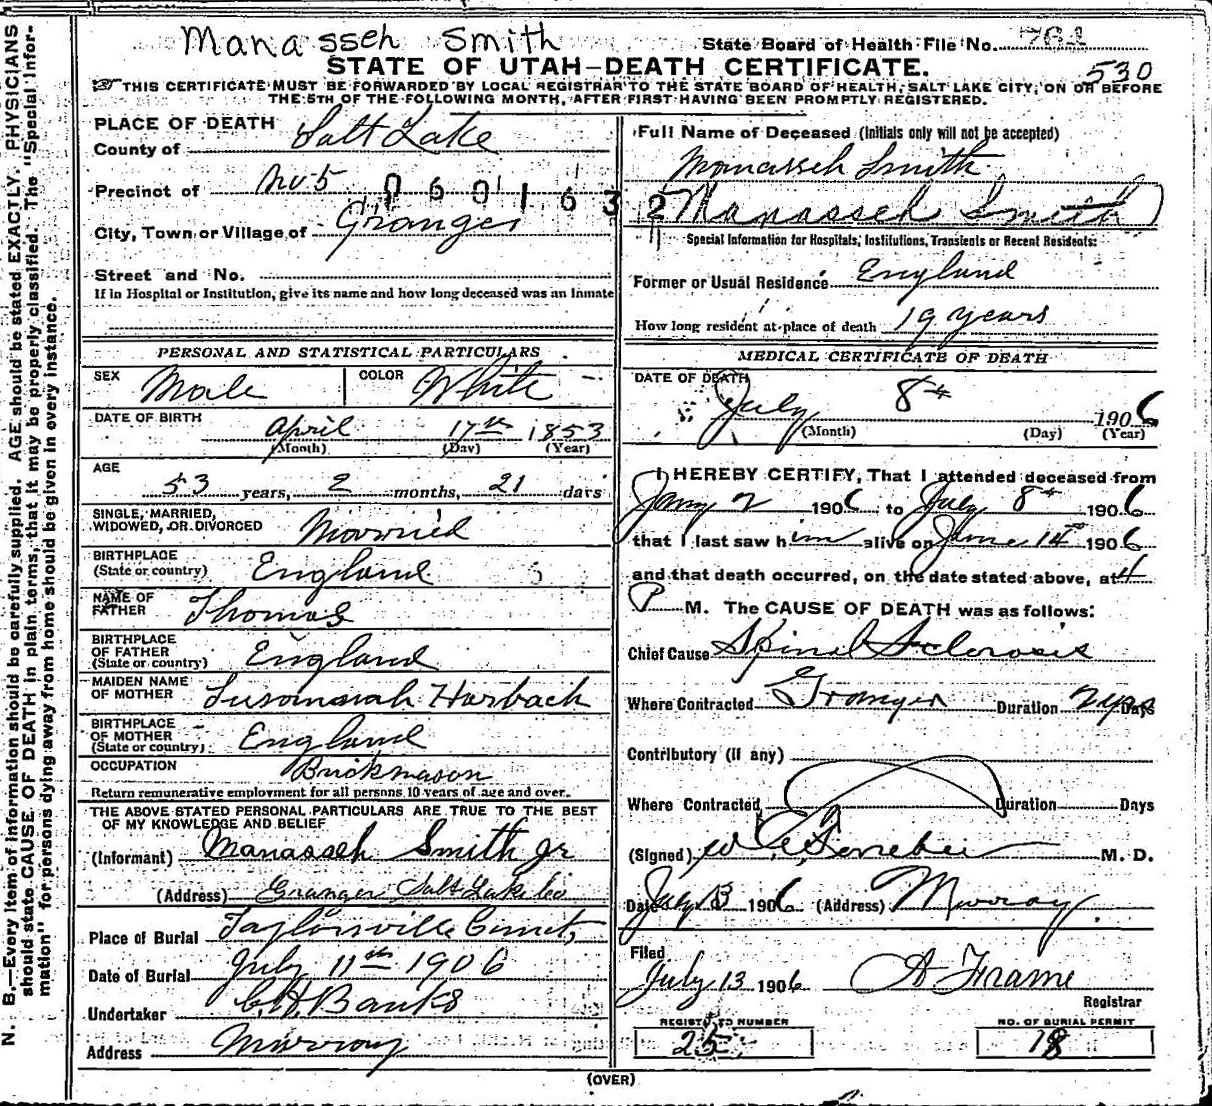 Manasseh Smith
State Board of Health File No. 761
530
STATE OF UTAH—DEATH CERTIFICATE.
THIS CERTIFICATE MUST BE FORWARDED BY LOCAL REGISTRAR TO THE STATE BOARD OF HEALTH, SALT LAKE CITY, ON OR BEFORE
THE 5TH OF THE FOLLOWING MONTH, AFTER FIRST HAVING BEEN PROMPTLY REGISTERED.
N. B.—Every item of information should be carefully supplied. AGE should be stated EXACTLY. PHYSICIANS
should state CAUSE OF DEATH in plain terms, that it may be properly classified. The "Special Infor-
mation" for persons dying away from home should be given in every instance.
PLACE OF DEATH
County of Salt Lake
Precinct of No 5
0601632
City, Town or Village of Granger
Street and No.
If in Hospital or Institution, give its name and how long deceased was an inmate
PERSONAL AND STATISTICAL PARTICULARS
SEX Male COLOR White
DATE OF BIRTH
April 17th 1853
(Month) (Day) (Year)
AGE
53 years, 2 months, 21 days
SINGLE, MARRIED,
WIDOWED, OR DIVORCED Married
BIRTHPLACE
(State or country) England
NAME OF
FATHER Thomas
BIRTHPLACE
OF FATHER
(State or country) England
MAIDEN NAME
OF MOTHER Susannah Harbach
BIRTHPLACE
OF MOTHER
(State or country) England
OCCUPATION Brickmason
Return remunerative employment for all persons 10 years of age and over.
THE ABOVE STATED PERSONAL PARTICULARS ARE TRUE TO THE BEST
OF MY KNOWLEDGE AND BELIEF
(Informant) Manasseh Smith Jr
(Address) Granger Salt Lake Co
Place of Burial Taylorsville Cemet
Date of Burial July 11th 1906
Undertaker C. A. Banks
Address Murray
Full Name of Deceased (Initials only will not be accepted)
Manasseh Smith
Manasseh Smith
Special Information for Hospitals, Institutions, Transients or Recent Residents:
Former or Usual Residence England
How long resident at place of death 19 years
MEDICAL CERTIFICATE OF DEATH
DATE OF DEATH
July 8th 1906
(Month) (Day) (Year)
I HEREBY CERTIFY, That I attended deceased from
Jany 2 1906 to July 8th 1906
that I last saw him alive on June 1906
and that death occurred, on the date stated above, at 4
P M. The CAUSE OF DEATH was as follows:
Chief Cause Spinal Sclerosis
Where Contracted Granger Duration 2 yrs Days
Contributory (if any)
Where Contracted Duration Days
(Signed) M. D.
Date July 1906 (Address) Murray
Filed
July 13 1906 A Frame
Registrar
REGISTERED NUMBER
25
NO. OF BURIAL PERMIT
18
(OVER)